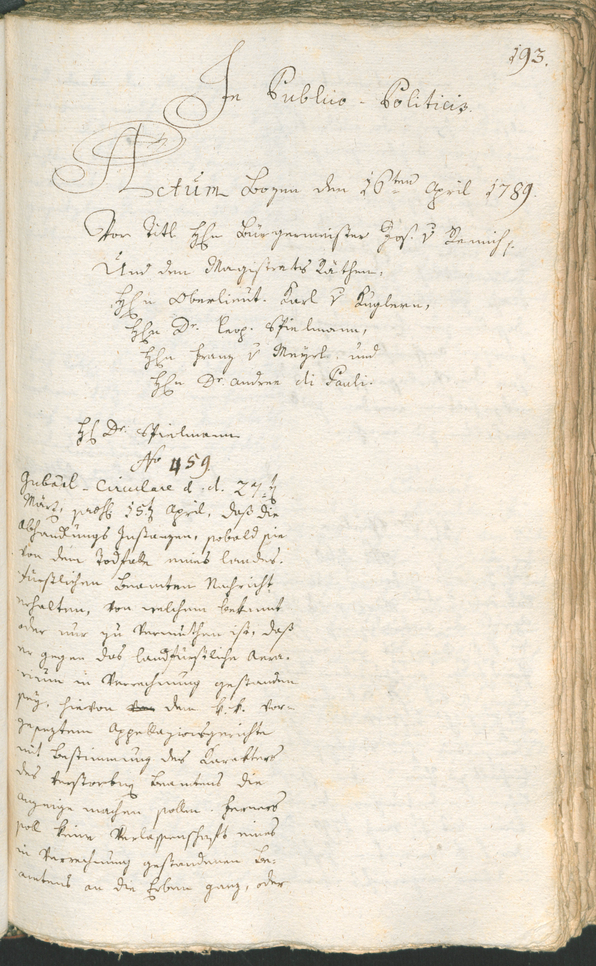 193.
In Publico-Politicis.
Actum Bozen den 16ten April 1789.
Vor Titl Hhn Bürgermeister Jos. v Remich,
Und den Magistrats Räthen,
Hhn Oberlieut. Karl v Kuglern,
Hhn Dr. Leop. Spielmann,
Hhn Franz v Mayrl. und
Hhn Dr. Andree di Pauli.
Hh Dr. Spielmann
No 459
Gubal-Circulare d. d. 27t
März, 15t April, daß die
Abhandlungs Instanzen, sobald sie
von dem Todfalle eines landes-
fürstlichen Beamten Nachricht
erhalten, von welchem bekannt
oder nur zu vermuthen ist, daß
er gegen das landfürstliche Aera-
rium in Verrechnung gestanden
sey, hievon dem k. k. vor-
gesezten Appellazionsgerichte
mit Bestimmung des Karakters
des verstorbnen Beamtens die
Anzeige machen sollen. Ferners
soll keine Verlassenschaft eines
in Verrechnung gestandenen Be-
amtens an die Erben ganz, oder